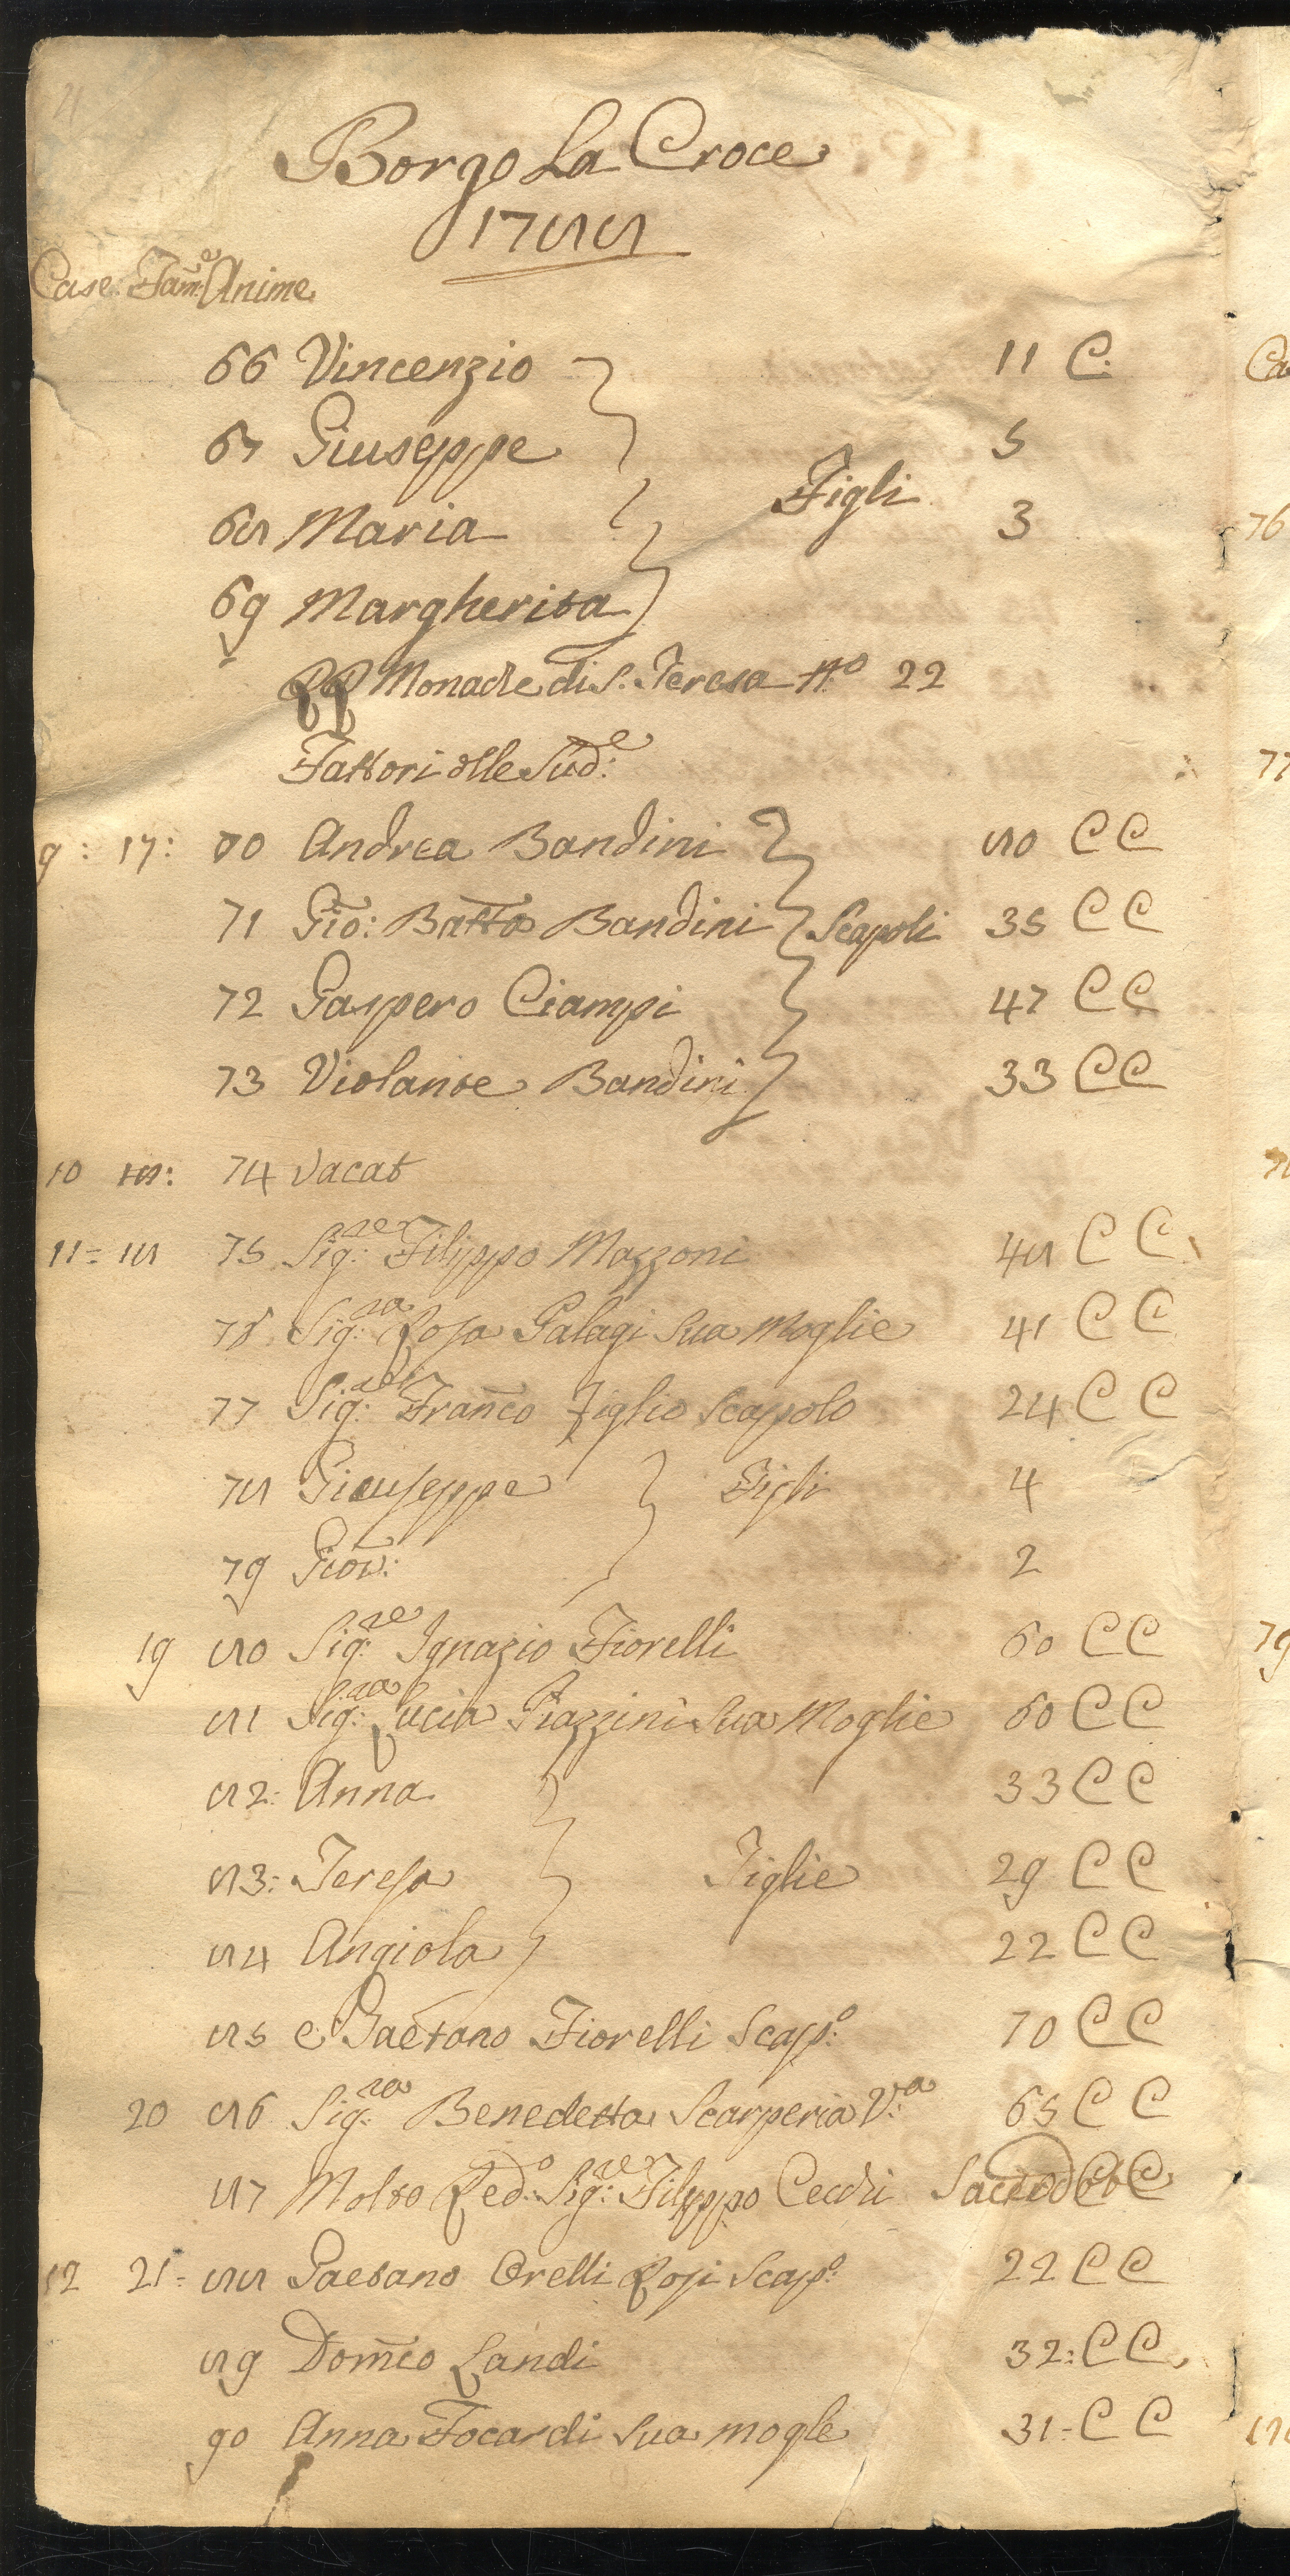 Borgo La Croce
1788
Case. Fam:e Anime
66 Vincenzio 11 C:
67 Giuseppe 5
Figli
68 Maria 3
69 Margherita
RR Monache di S. Teresa N.o 22
Fattori delle Sud:e
9: 17: 70 Andrea Bandini 80 C C
71 Gio: Batta Bandini Scapoli 35 C C
72 Gaspero Ciampi 47 C C
73 Violante Bandini 33 C C
10 18: 74 Vacat
11= 18 75 Sig:re Filippo Mazzoni 48 C C
76 Sig:ra Rosa Galagi Sua Moglie 41 C C
77 Sig:re Franco Figlio Scapolo 24 C C
78 Giuseppe Figli 4
79 Giov: 2
19 80 Sig:re Ignazio Fiorelli 60 C C
81 Sig:ra Lucia Piazzini Sua Moglie 60 C C
82: Anna 33 C C
83: Teresa Figlie 29 C C
84 Angiola 22 C C
85 e Gaetano Fiorelli Scap:o 70 C C
20 86 Sig:ra Benedetta Scarperia V:a 65 C C
87 Molto Red:o Sig:re Filippo Cecchi Sacerdote C C
12 21= 88 Gaetano Orelli Rosi Scap:o 22 C C
89 Domco Landi 32: C C
90 Anna Focardi Sua mogle 31= C C
76
77
79